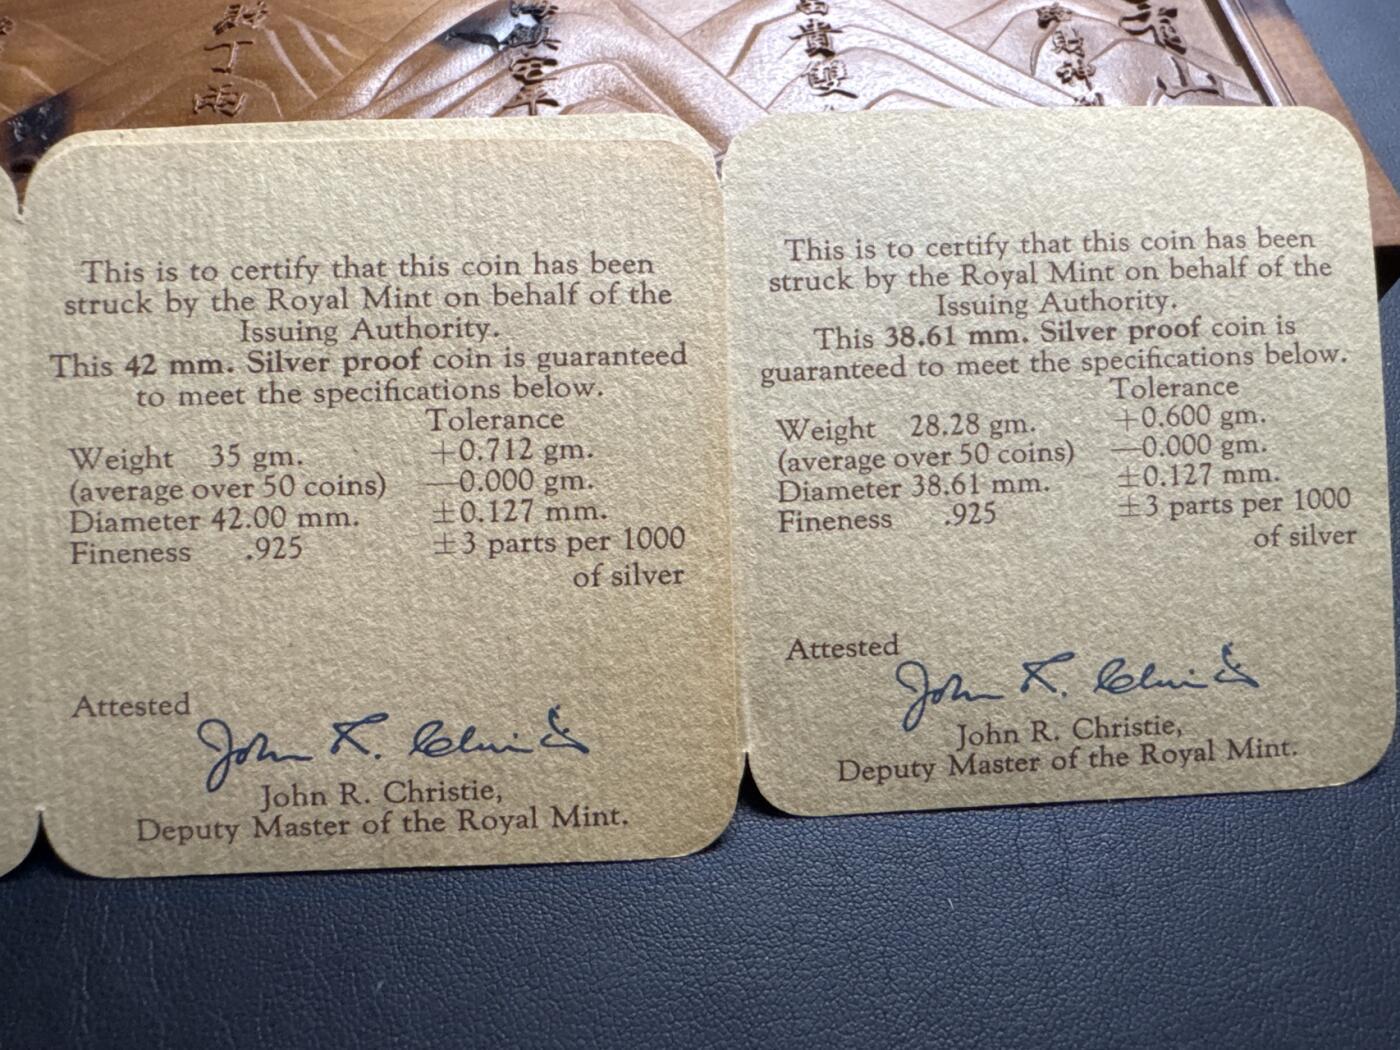 丁
貴
雙
財
神
山
This is to certify that this coin has been
struck by the Royal Mint on behalf of the
Issuing Authority.
This 42 mm. Silver proof coin is guaranteed
to meet the specifications below.
Tolerance
Weight 35 gm. +0.712 gm.
(average over 50 coins) —0.000 gm.
Diameter 42.00 mm. ±0.127 mm.
Fineness .925 ±3 parts per 1000
of silver
Attested
John R. Christie
John R. Christie,
Deputy Master of the Royal Mint.
This is to certify that this coin has been
struck by the Royal Mint on behalf of the
Issuing Authority.
This 38.61 mm. Silver proof coin is
guaranteed to meet the specifications below.
Tolerance
Weight 28.28 gm. +0.600 gm.
(average over 50 coins) —0.000 gm.
Diameter 38.61 mm. ±0.127 mm.
Fineness .925 ±3 parts per 1000
of silver
Attested
John R. Christie
John R. Christie,
Deputy Master of the Royal Mint.